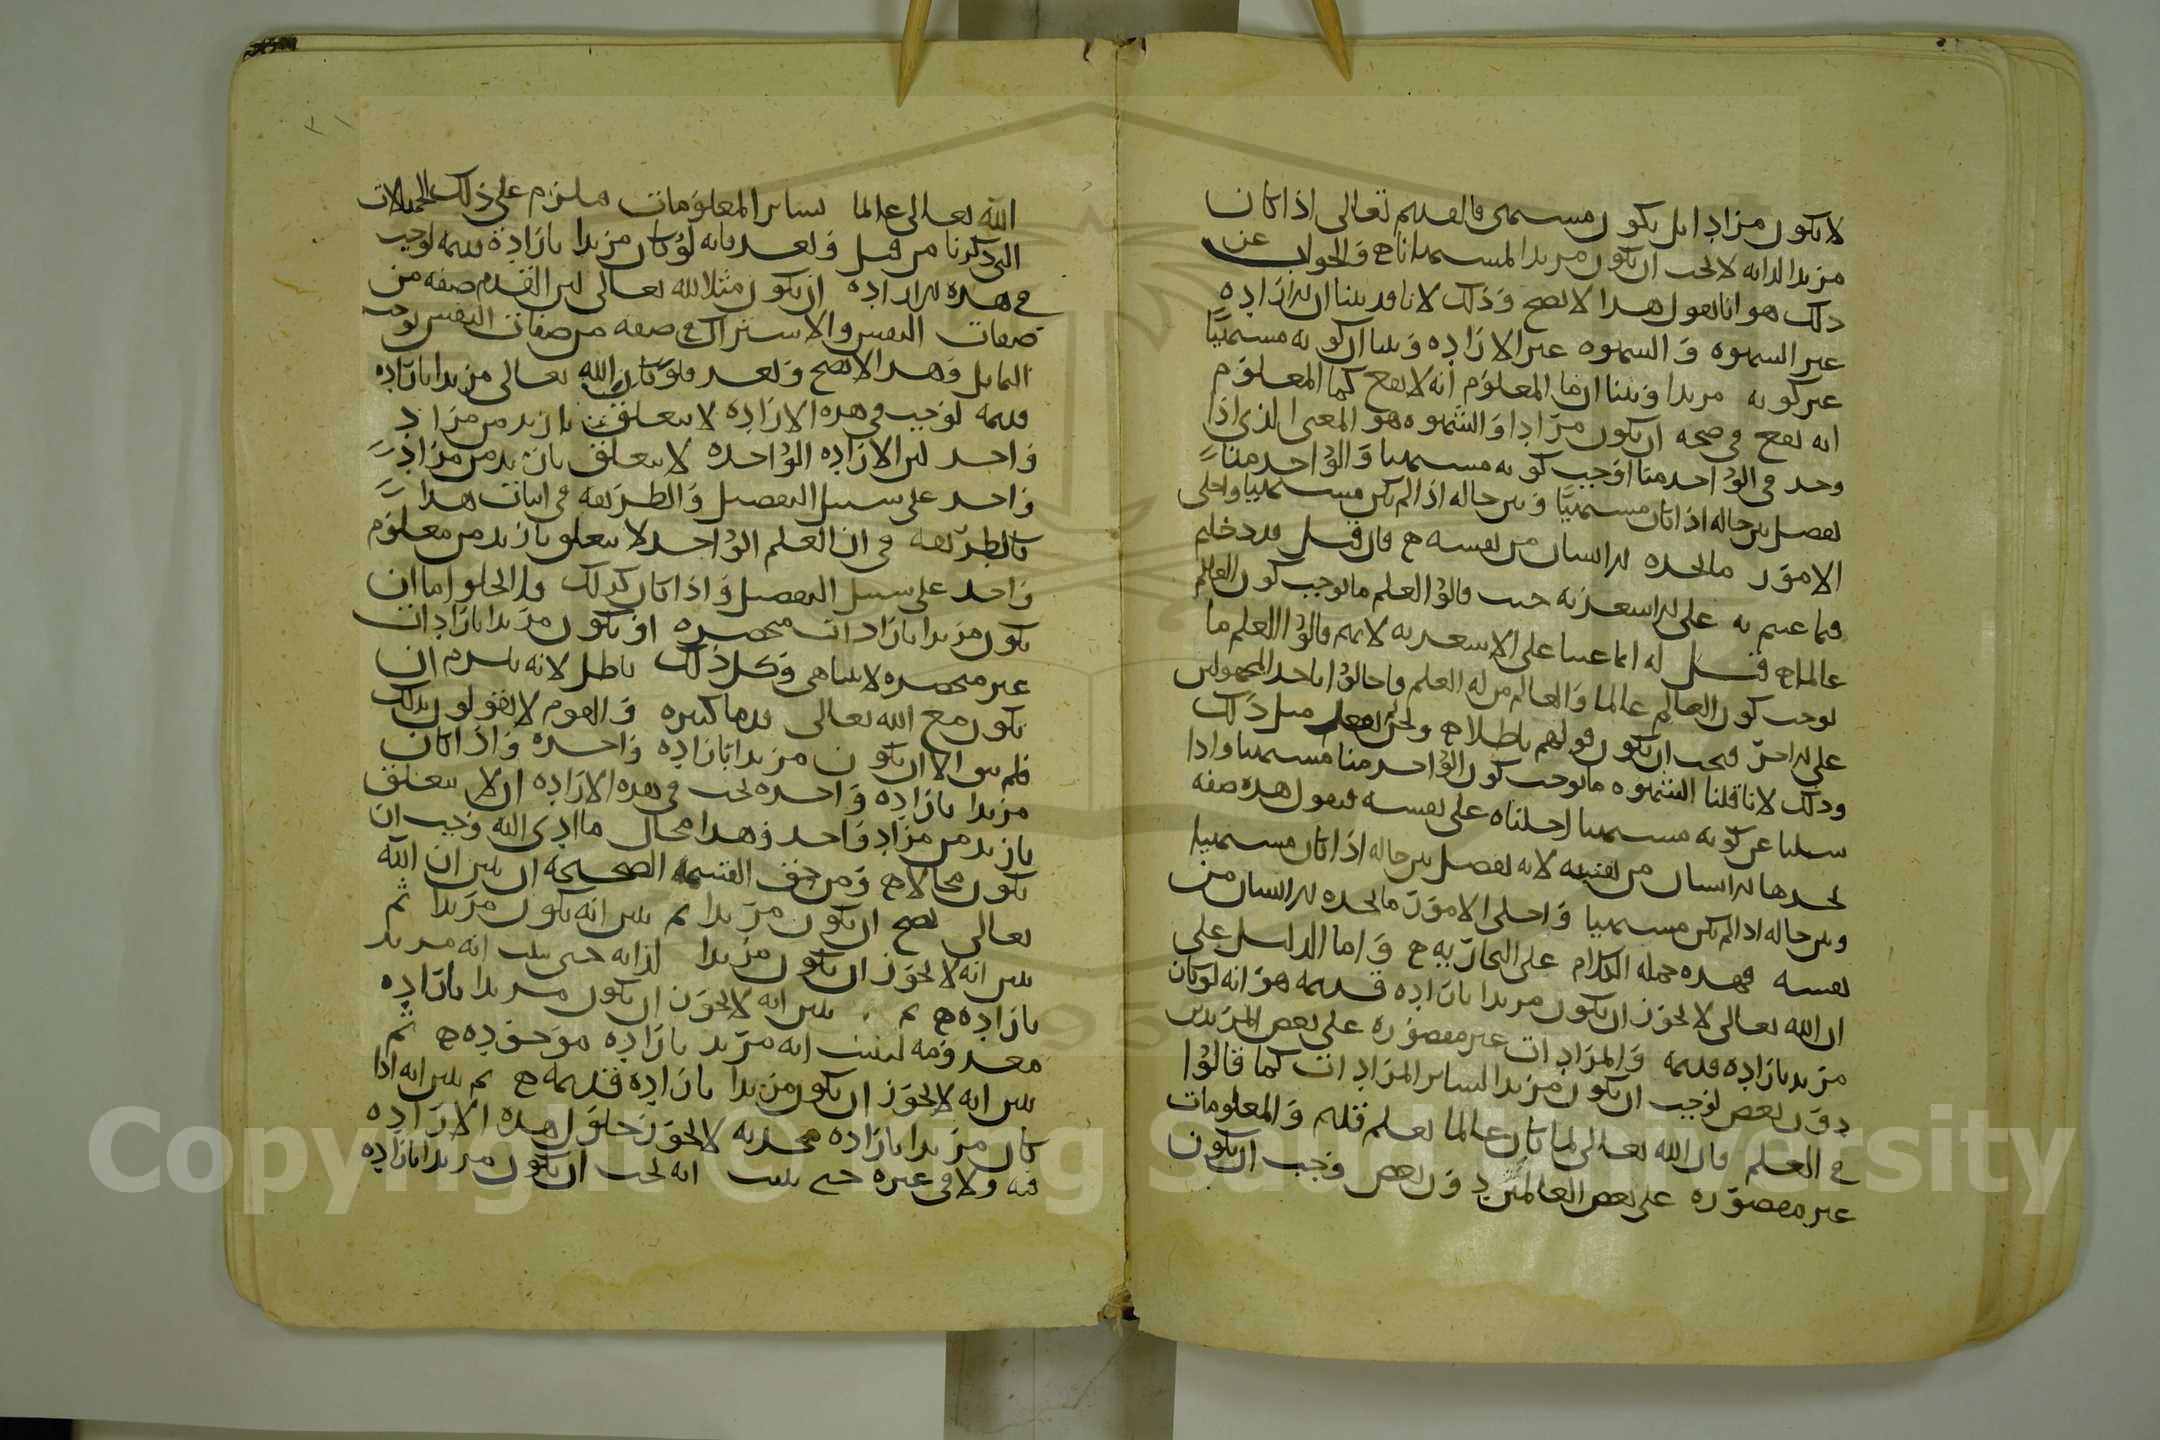 لا يكون مرادا بل يكون مشتهى فالقديم تعالى اذا كان
مريدا لذاته لا يجب ان يكون مريدا للمشتهيات ح والجواب عن
ذلك هو انا نقول هذا لا يصح وذلك لانا قد بينا ان الارادة
غير الشهوة والشهوة غير الارادة وبينا ان كونه مشتهيا
غير كونه مريدا وبينا ان ما المعلوم انه لا يقع كما المعلوم
انه يقع في صحة ان يكون مرادا والشهوة هو المعنى الذي اذا
وجد في الواحد منا اوجب كونه مشتهيا والواحد منا
يفصل بين حاله اذا كان مشتهيا وبين حاله اذا لم يكن مشتهيا واجلى
الامور ما يجده الانسان من نفسه ح فان قيل قد دخلتم
فيما عبتم به على الاشعرية حيث قالوا العلم ما يوجب كون العالم
عالما ح قيل له انما عبنا على الاشعرية لانهم قالوا العلم ما
يوجب كون العالم عالما والعالم من له العلم فاحالوا باحد المجهولين
على الاخر فيجب ان يكون قولهم باطلا ح ولم نفعل مثل ذلك
وذلك لانا قلنا الشهوة ما يوجب كون الواحد منا مشتهيا واذا
سئلنا عن كونه مشتهيا احلناه على نفسه فنقول هذه صفة
يجدها الانسان من نفسه لانه يفصل بين حاله اذا كان مشتهيا
وبين حاله اذا لم يكن مشتهيا واجلى الامور ما يجده الانسان من
نفسه فهذه جملة الكلام على النجارية ح واما الدليل على
ان الله تعالى لا يجوز ان يكون مريدا بارادة قديمة هو انه لو كان
مريد بارادة قديمة والمرادات غير مقصورة على بعض المريدين
دون بعض لوجب ان يكون مريدا لسائر المرادات كما قالوا
في العلم فان الله تعالى لما كان عالما بعلم قديم والمعلومات
غير مقصورة على بعض العالمين دون بعض وجب ان يكون
الله تعالى عالما بسائر المعلومات فيلزم على ذلك المحالات
التي ذكرنا من قبل وبعد فانه لو كان مريدا بارادة قديمة لوجب
في هذه الارادة ان يكون مثلا لله تعالى لان القدم صفة من
صفات النفس والاشتراك في صفة من صفات النفس يوجب
التماثل وهذا لا يصح وبعد فلو كان الله تعالى مريدا بارادة
قديمة لوجب في هذه الارادة لا يتعلق بازيد من مراد
واحد لان الارادة الواحدة لا يتعلق بازيد من مراد
واحد على سبيل التفصيل والطريقة في اثبات هذا
كالطريقة في ان العلم الواحد لا يتعلق بازيد من معلوم
واحد على سبيل التفصيل واذا كان كذلك فلا يخلو اما ان
يكون مريدا بارادات منحصرة او يكون مريدا بارادات
غير منحصرة لا يتناهى وكل ذلك باطل لانه يلزم ان
يكون مع الله تعالى قدما كثيرة والقوم لا يقولون بذلك
فلم يبق الا ان يكون مريدا بارادة واحدة واذا كان
مريدا بارادة واحدة يجب في هذه الارادة ان لا يتعلق
بازيد من مراد واحد وهذا محال ما ادى اليه وجب ان
يكون محالا ح ومن حق القسمة الصحيحة ان يبين ان الله
تعالى يصح ان يكون مريدا ثم يبين انه يكون مريدا ثم
يبين انه لا يجوز ان يكون مريدا لذاته حتى يثبت انه مريد
بارادة ح ثم يبين انه لا يجوز ان يكون مريدا بارادة
معدومة ليثبت انه مريد بارادة موجودة ح ثم
يبين انه لا يجوز ان يكون مريدا بارادة قديمة ح ثم يبين انه اذا
كان مريدا بارادة محدثة لا يجوز حلول هذه الارادة
فيه ولا في غيره حتى يثبت انه يجب ان يكون مريدا بارادة